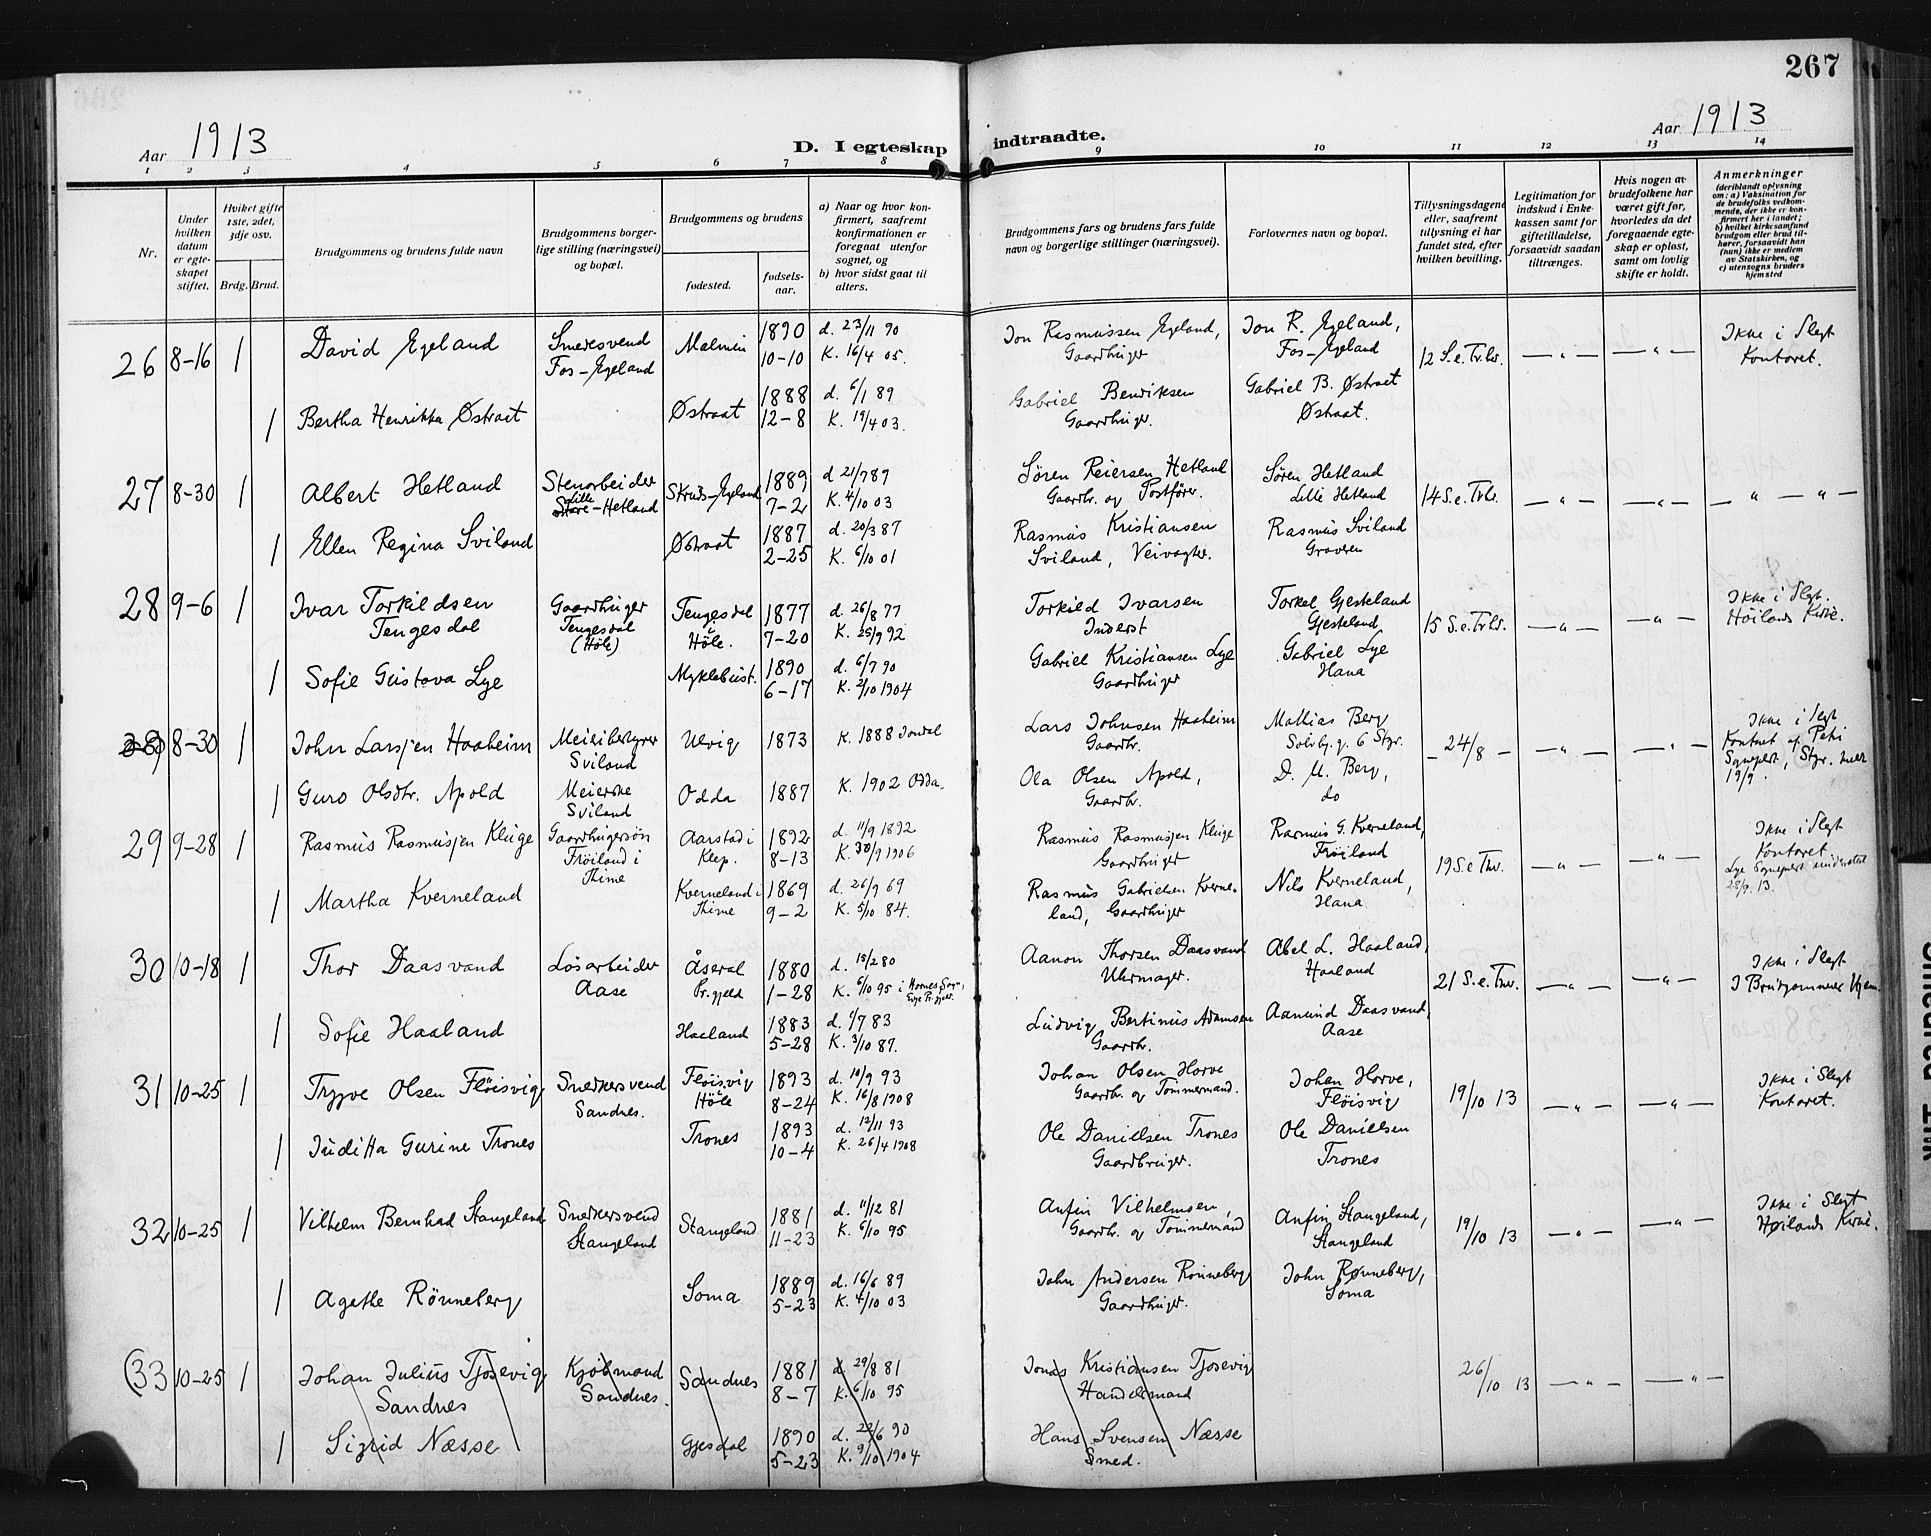 267
Aar 1913
D. I egteskap indtraadte.
Aar 1913
1 2 3 4 5 6 7 8 9 10 11 12 13 14
Nr.
Under hvilken datum er egteskapet stiftet.
Hviket gifte 1ste, 2det, 3dje osv.
Brdg. Brud.
Brudgommens og brudens fulde navn
Brudgommens borgerlige stilling (næringsvei) og bopæl.
Brudgommens og brudens
fødested.
fødselsaar.
a) Naar og hvor konfirmert, saafremt konfirmationen er foregaat utenfor sognet, og
b) hvor sidst gaat til alters.
Brudgommens fars og brudens fars fulde navn og borgerlige stillinger (næringsvei).
Forlovernes navn og bopæl.
Tillysningsdagene eller, saafremt tillysning ei har fundet sted, efter hvilken bevilling.
Legitimation for indskud i Enkekassen samt for giftetilladelse, forsaavidt saadan tiltrænges.
Hvis nogen av brudefolkene har været gift før, hvorledes da det foregaaende egteskap er opløst, samt om lovlig skifte er holdt.
Anmerkninger
(deriblandt oplysning om: a) Vaksination for de brudefolks vedkommende, der ikke er konfirmert her i landet; b) hvilket kirkesamfund brudgom eller brud tilhører, forsaavidt han (hun) ikke er medlem av Statskirken, og c) utensogns bruders hjemsted
26 8-16 1 David Egeland Smedesvend Fos-Egeland Malmin 1890 10-10 d. 23/11 90 K. 16/4 05. Jon Rasmussen Egeland, Gaardbruger Jon R. Egeland, Fos-Egeland 12 S.e.Tr.br. — " — — " — Ikke i Slegt Kontoret.
1 Bertha Henrikka Østraat Østraat 1888 12-8 d. 6/1 89 K. 19/4 03. Gabriel Henriksen Gaardbruger. Gabriel B. Østraat Østraat.
27 8-30 1 Albert Hetland Stenarbeider Lille-Hetland Skruds-Egeland 1889 7-2 d 21/7 89 K. 4/10 03 Søren Reiersen Hetland Gaardbr. og Postfører. Søren Hetland Lille Hetland 14 S.e.Trbr. — " — — " — — " — " —
1 Ellen Regina Sviland Østraat 1887 2-25 d. 20/3 87 K. 6/10 01 Rasmus Kristiansen Sviland, Veivogter. Rasmus Sviland Graveren
28 9-6 1 Ivar Torkildsen Tengesdal Gaardbruger Tengesdal (Høle) Tengesdal i Höle. 1877 7-20 d. 26/8 77 K. 25/9 92 Torkild Ivarsen Inderst Torkel Gjesteland Gjesteland 15 S.e.Trbr. — " — — " — Ikke i Slegt. Höilands Kirke.
1 Sofie Gustava Lye Myklebust. 1890 6-17 d. 6/7 90 K. 2/10 1904 Gabriel Kristiansen Lye Gaardbruger Gabriel Lye Hana
8-30 1 John Larsjen Haaheim Meieribestyrer Sviland Ulvig 1873 K. 1888 Jondal Lars Johnsen Haaheim Gaardbr. Mathias Berg Solvbj.g. 6 Stgr. — 24/8 — — " — — " — Ikke i Slegt Kontoret af
1 Guro Olsdtr. Apold Meierske Sviland Odda 1887 K. 1902 Odda. Ola Olsen Apold, Gaardbr. D. M. Berg, do 19/9.
29 9-28 1 Rasmus Rasmusjen Kluge Gaardbrugersøn Frøiland i Thime Aarstad i Klep. 1892 8-13 d. 11/9 1892 K. 30/9 1906 Rasmus Rasmusjen Kluge Gaardbruger Rasmus G. Kverneland, Frøiland 19 S.e Thr. — " — — " — Ikke i Slegt Kontoret. 28/9. 13.
1 Martha Kverneland Kverneland i Thime 1869 9-2 d. 26/9 69 K. 5/10 84. Rasmus Gabrielsen Kverneland, Gaardbruger Nils Kverneland, Hana
30 10-18 1 Thor Daasvand Løsarbeider Aase Åseral Pr.gjeld 1880 1-28 d. 15/2 80 K. 6/10 95 i Hornes Sogn, Evje Pr.gjeld. Aanon Thorsen Daasvand Uhrmager. Abel L. Haaland, Haaland 21 S.e.Thr. — " — — " — Ikke i Slegt I Brudgommens Hjem.
1 Sofie Haaland Haaland 1883 5-28 d. 1/7 83 K. 3/10 87. Ludvig Bertinius Adamsen Gaardbr. Aamund Daasvand, Aase
31 10-25 1 Trygve Olsen Fløisvig Snedkersvend Sandnes. Fløisvig i Höle 1893 8-24 d. 10/9 93 K. 16/8 1908 Johan Olsen Horve Gaardbr. og Tømmermand. Johan Horve, Fløisvig 19/10 13 — " — — " — Ikke i Slegt Kontoret.
1 Juditta Gurine Trones Trones 1893 10-4 d. 12/11 93 K. 26/4 1908 Ole Danielsen Trones Gaardbruger. Ole Danielsen Trones
32 10-25 1 Vilhelm Bernhad Stangeland Snedkersvend Stangeland Stangeland 1881 11-23 d. 11/12 81 K. 6/10 95 Anfin Vilhelmsen, Gaardbr. og Tømmermand Anfin Stangeland, Stangeland 19/10 13 — " — — " — Ikke i Slegt Høilands Kirke.
1 Agathe Rönneberg Soma 1889 5-23 d. 16/6 89 K. 4/10 03 John Andersen Rønneberg Gaardbruger. John Rønneberg, Soma
(33 10-25 1 Johan Julius Tjosevig Sandnes Kjøbmand Sandnes. Sandnes 1881 8-7 d 29/8 81 K. 6/10 95 Jonas Kristiansen Tjosevig Handelsmand 26/10 13 — " — — " —
1 Sigrid Næsse Gjesdal 1890 5-23 d. 22/6 90 K. 9/10 1904 Hans Svensen Næsse Smed.